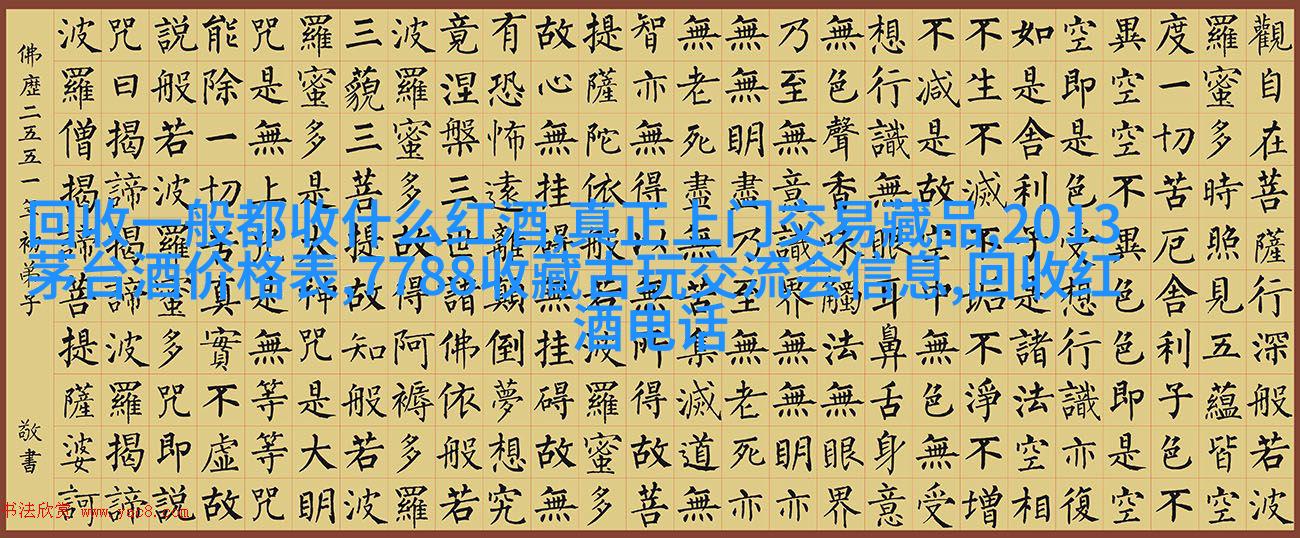 觀自在菩薩行深般若波
羅蜜多時照見五蘊皆空
度一切苦厄舍利子色不
異空空不異色色即是空
空即是色受想行識亦復
如是舍利子是諸法空相
不生不滅不垢不淨不增
不減是故空中無色無受
想行識無眼耳鼻舌身意
無色聲香味觸法無眼界
乃至無意識界無無明亦
無無明盡乃至無老死亦
無老死盡無苦集滅道無
智亦無得以無所得故菩
提薩陀依般若波羅蜜多
故心無挂礙無挂礙故無
有恐怖遠離顛倒夢想究
竟涅槃三世諸佛依般若
波羅蜜多故得阿褥多羅
三藐三菩提故知般若波
羅蜜多是大神咒是大明
咒是無上咒是無等等咒
能除一切苦真實不虛故
說般若波羅蜜多咒即說
咒曰揭諦揭諦波羅揭諦
波羅僧揭諦菩提薩婆訶
佛歷二五五一年初弟子
敬書
回收一般都收什么红酒,真正上门交易藏品,2013
茅台酒价格表,7788收藏古玩交流会信息,回收红
酒电话
书法欣赏 www.yac8.com